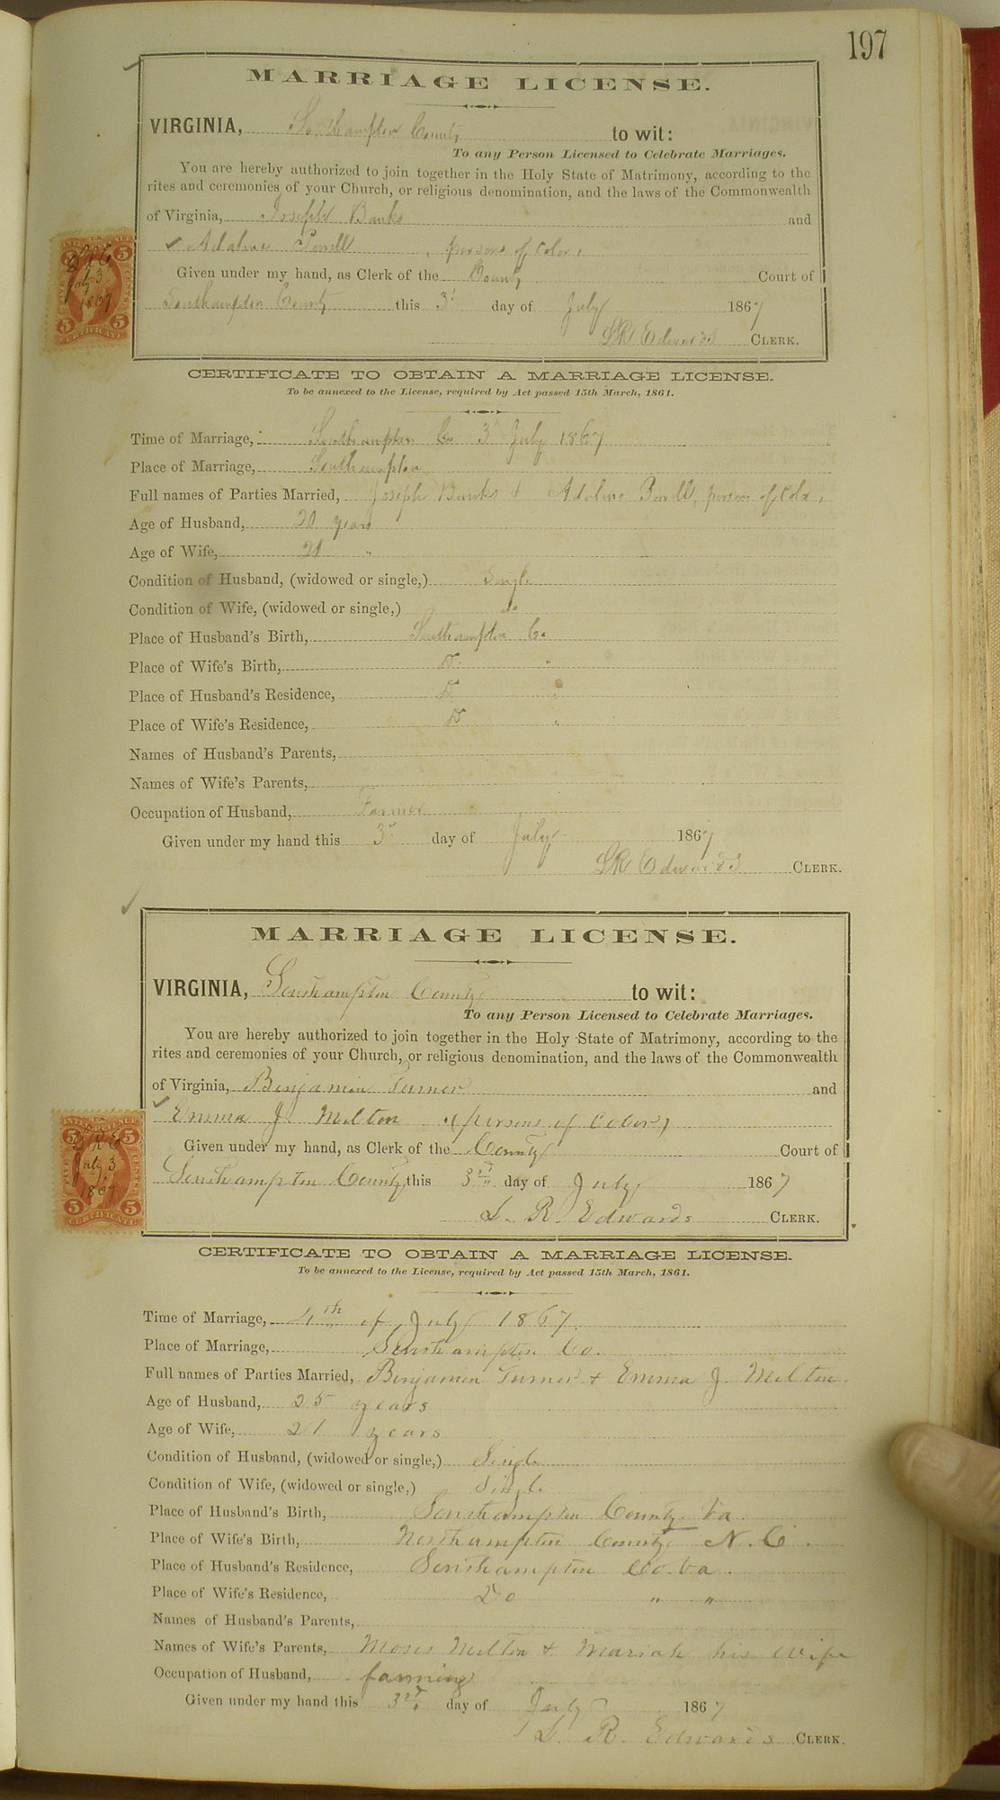 197
MARRIAGE LICENSE.
VIRGINIA, Southampton County to wit:
To any Person Licensed to Celebrate Marriages.
You are hereby authorized to join together in the Holy State of Matrimony, according to the
rites and ceremonies of your Church, or religious denomination, and the laws of the Commonwealth
of Virginia, Joseph Banks and
Adaline Powell, persons of Color,
Given under my hand, as Clerk of the County Court of
Southampton County this 3d day of July 1867
LR Edwards CLERK.
5 5
July 3
1867
5 5
CERTIFICATE
CERTIFICATE TO OBTAIN A MARRIAGE LICENSE.
To be annexed to the License, required by Act passed 15th March, 1861.
Time of Marriage, Southampton Co. 3d July 1867
Place of Marriage, Southampton
Full names of Parties Married, Joseph Banks & Adaline Powell, persons of Color,
Age of Husband, 20 years
Age of Wife, 21 "
Condition of Husband, (widowed or single,) Single
Condition of Wife, (widowed or single,) do
Place of Husband's Birth, Southampton Co.
Place of Wife's Birth, Do "
Place of Husband's Residence, Do "
Place of Wife's Residence, Do "
Names of Husband's Parents,
Names of Wife's Parents,
Occupation of Husband, Farmer
Given under my hand this 3d day of July 1867
LR Edwards CLERK.
MARRIAGE LICENSE.
VIRGINIA, Southampton County to wit:
To any Person Licensed to Celebrate Marriages.
You are hereby authorized to join together in the Holy State of Matrimony, according to the
rites and ceremonies of your Church, or religious denomination, and the laws of the Commonwealth
of Virginia, Benjamin Turner and
Emma J. Melton (persons of Color)
Given under my hand, as Clerk of the County Court of
Southampton County, this 3rd day of July 1867
L. R. Edwards CLERK.
5 5
July 3
1867
5 5
CERTIFICATE
CERTIFICATE TO OBTAIN A MARRIAGE LICENSE.
To be annexed to the License, required by Act passed 15th March, 1861.
Time of Marriage, 4th of July 1867.
Place of Marriage, Southampton Co.
Full names of Parties Married, Benjamin Turner & Emma J. Melton.
Age of Husband, 25 years
Age of Wife, 21 years
Condition of Husband, (widowed or single,) Single
Condition of Wife, (widowed or single,) Single
Place of Husband's Birth, Southampton County Va.
Place of Wife's Birth, Northampton County N. C.
Place of Husband's Residence, Southampton Co. Va.
Place of Wife's Residence, Do " "
Names of Husband's Parents,
Names of Wife's Parents, Moses Melton & Mariah his wife
Occupation of Husband, farming
Given under my hand this 3rd day of July 1867
L. R. Edwards CLERK.